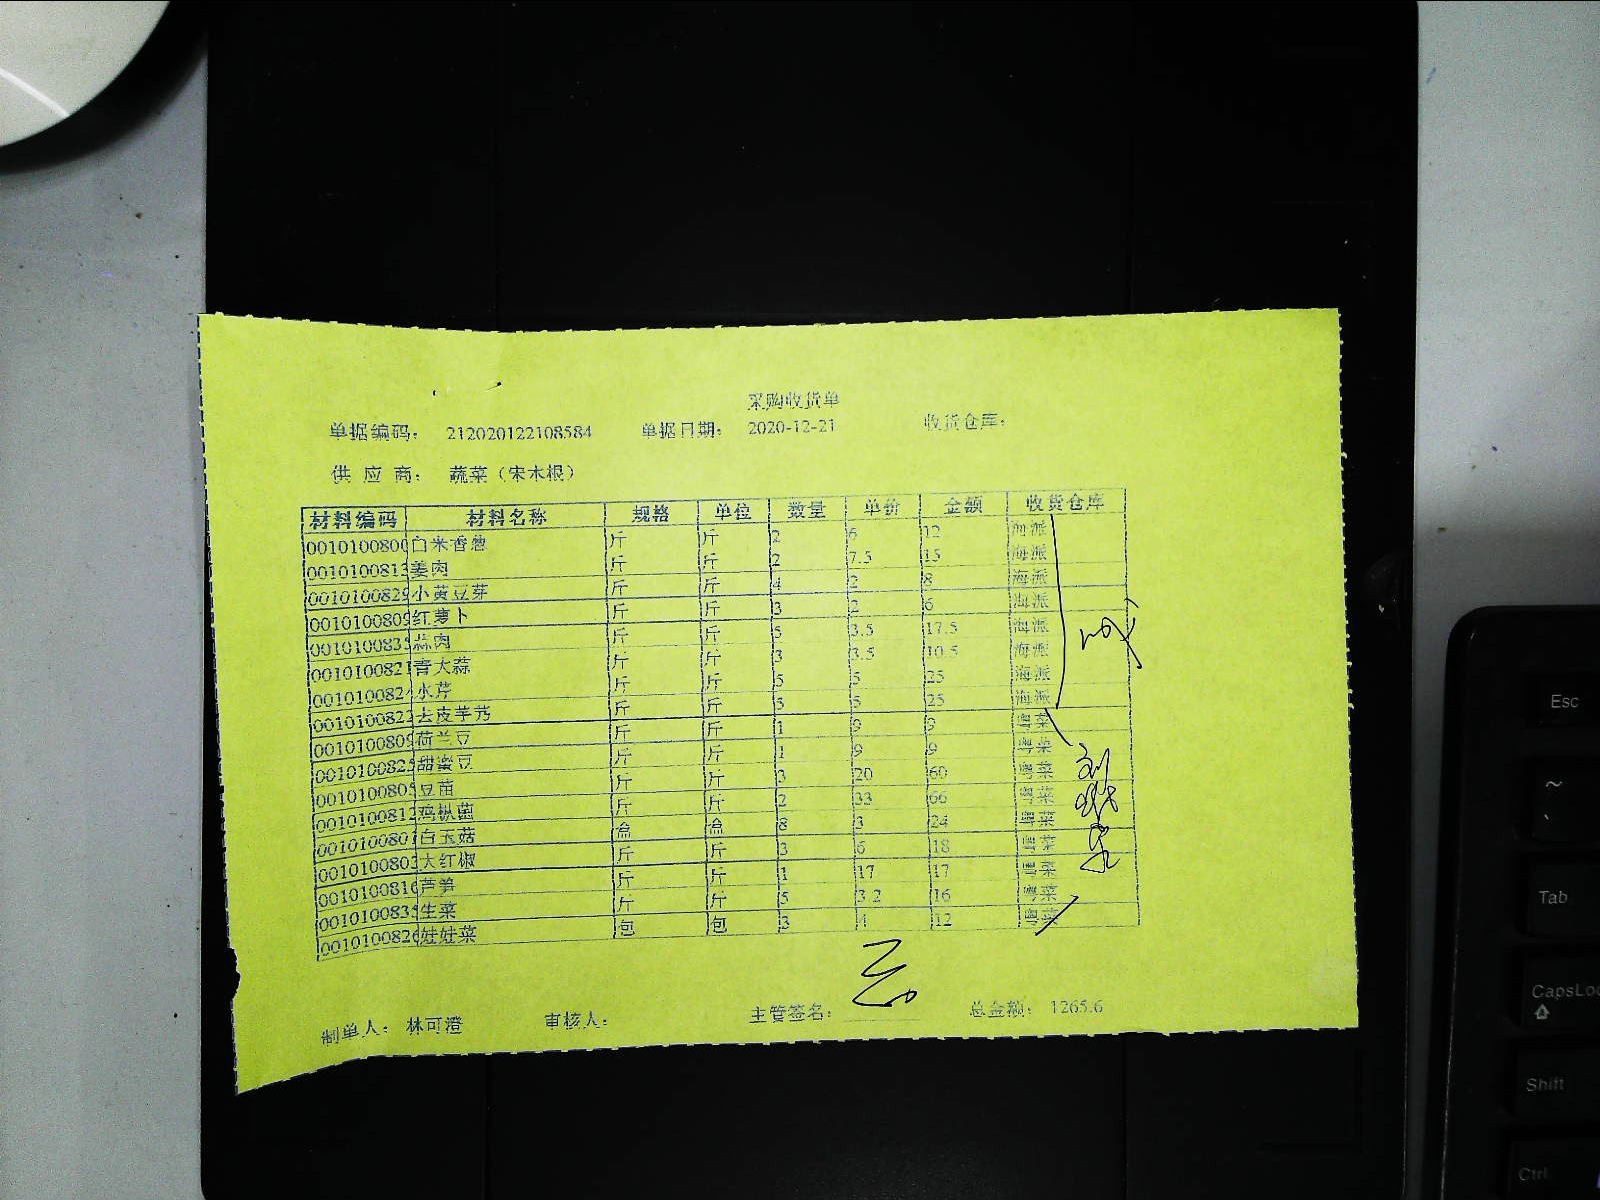 采购收货单
单据编码： 212020122108584 单据日期： 2020-12-21 收货仓库：
供 应 商： 蔬菜（宋木根）
材料编码 材料名称 规格 单位 数量 单价 金额 收货仓库
0010100800 白米香葱 斤 斤 2 6 12 海派
001010081 姜肉 斤 斤 2 7.5 15 海派
0010100829 小黄豆芽 斤 斤 4 2 8 海派
0010100809 红萝卜 斤 斤 3 2 6 海派
001010083 蒜肉 斤 斤 5 3.5 17.5 海派
001010082 青大蒜 斤 斤 3 3.5 10.5 海派
001010082 水芹 斤 斤 5 5 25 海派
0010100822 去皮芋艿 斤 斤 5 5 25 海派
0010100809 荷兰豆 斤 斤 1 9 9 粤菜
001010082 甜蜜豆 斤 斤 1 9 9 粤菜
001010080 豆苗 斤 斤 3 20 60 粤菜
0010100812 鸡枞菌 斤 斤 2 33 66 粤菜
001010080 白玉菇 盒 盒 8 3 24 粤菜
001010080 大红椒 斤 斤 3 6 18 粤菜
001010081 芦笋 斤 斤 1 17 17 粤菜
001010083 生菜 斤 斤 5 3.2 16 粤菜
001010082 娃娃菜 包 包 3 4 12 粤菜
制单人： 林可澄 审核人： 主管签名： 总金额： 1265.6
Esc
~
Tab
CapsLoc
Shift
Ctrl